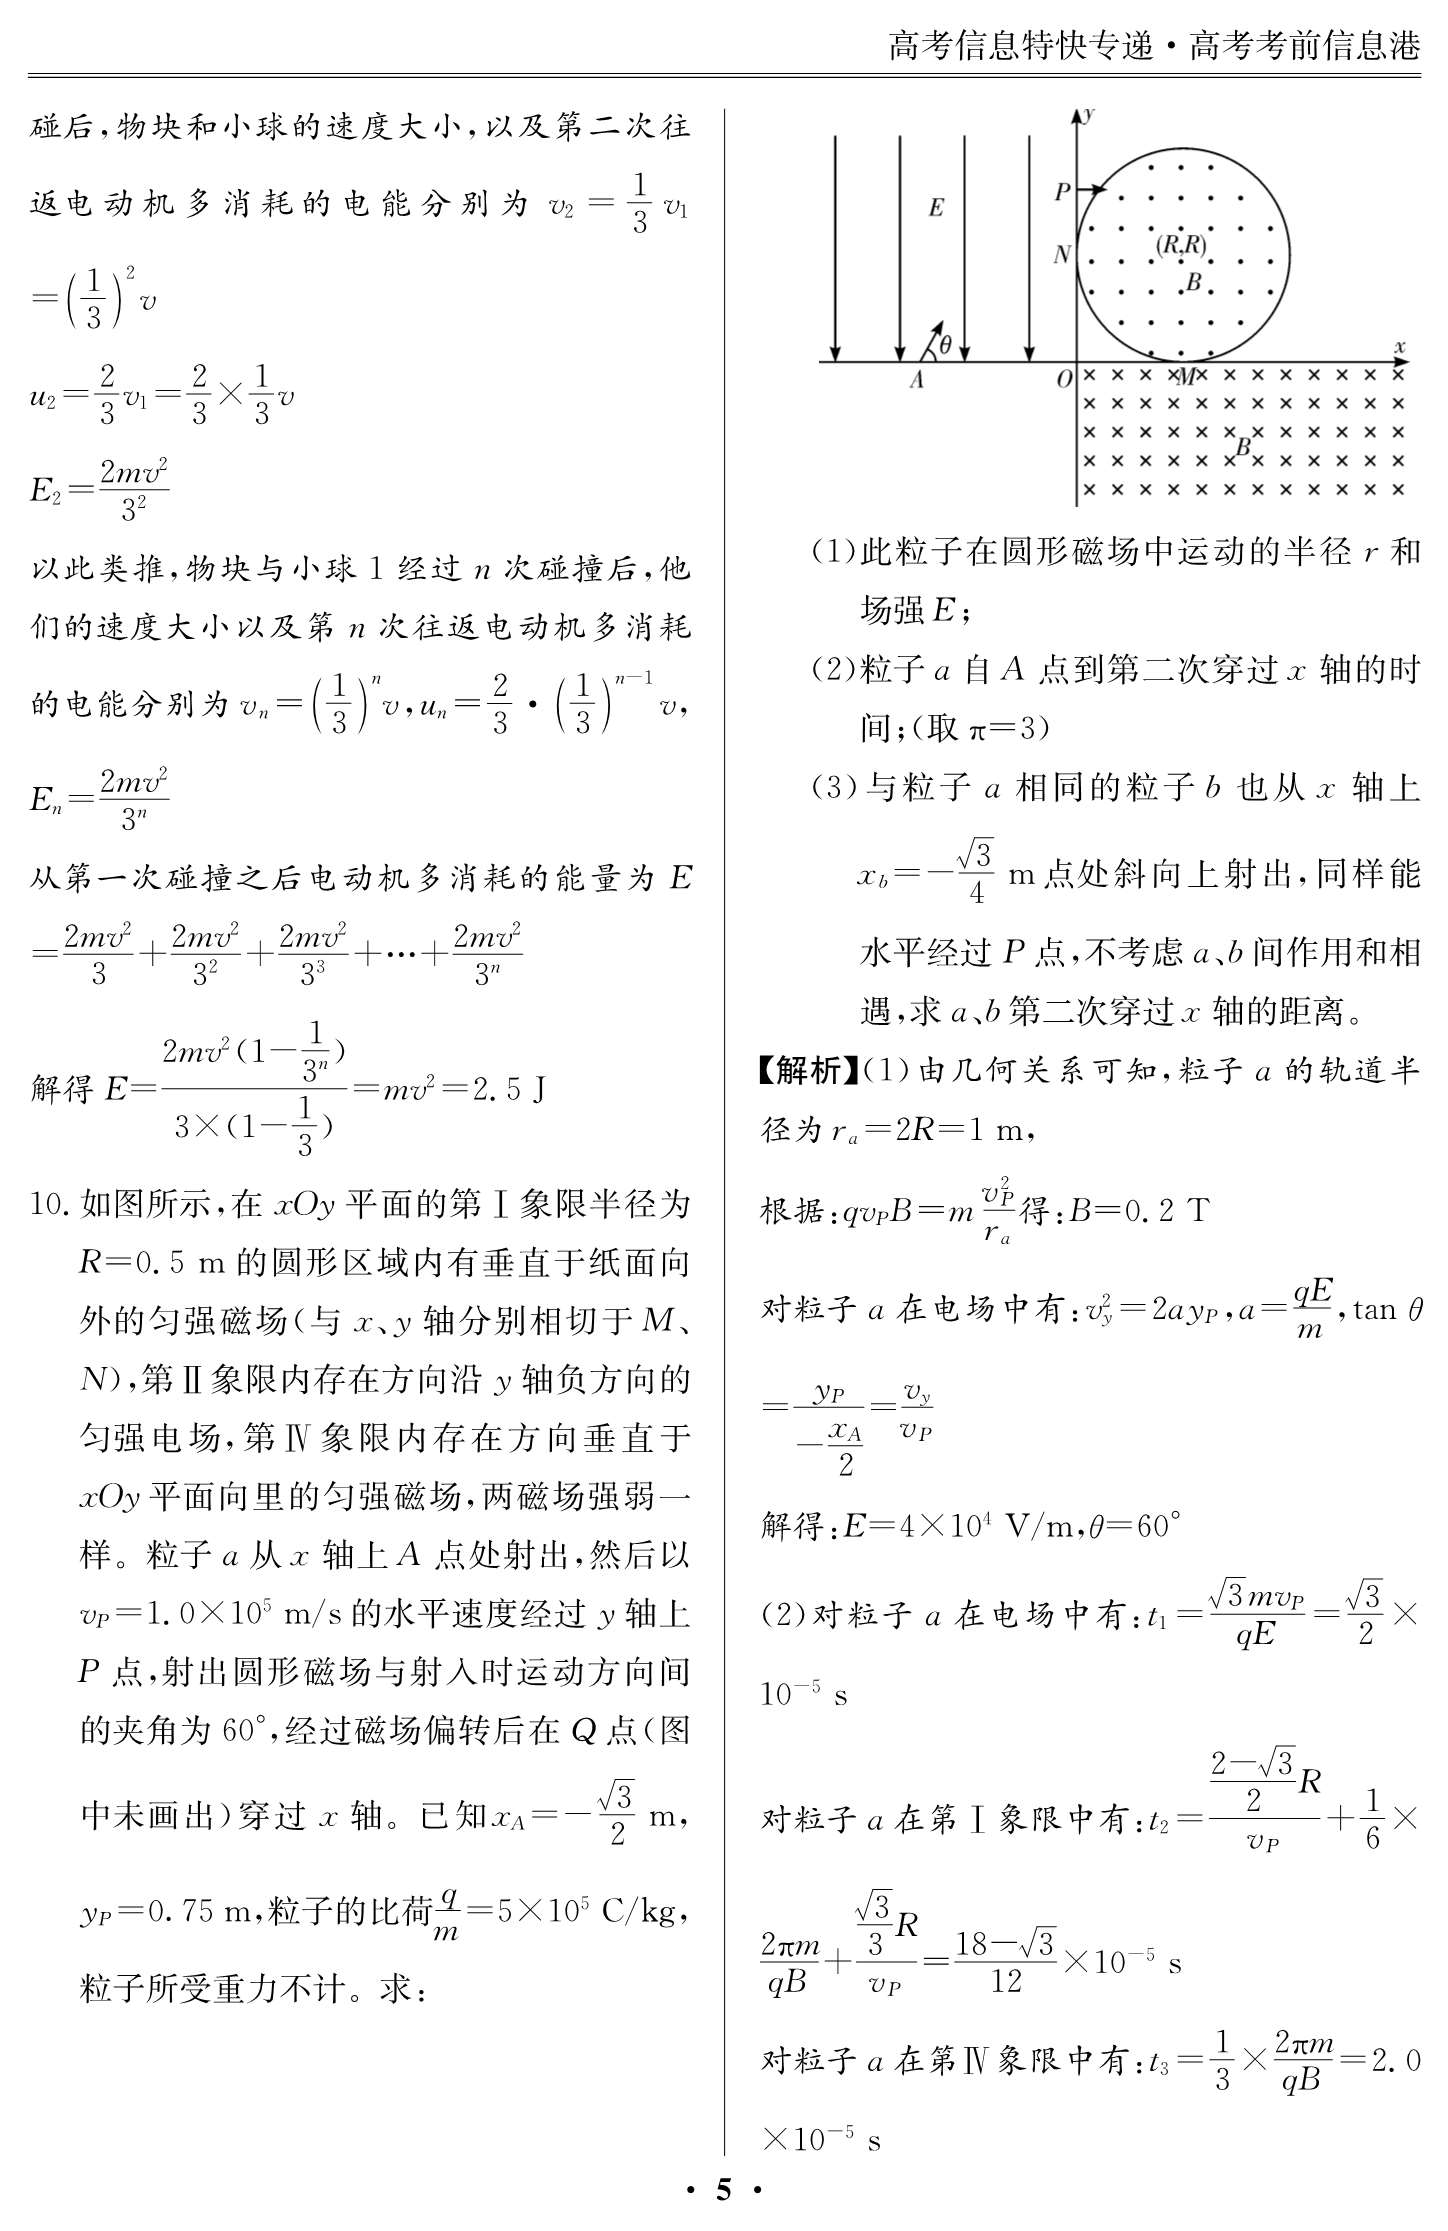 高考信息特快专递·高考考前信息港
碰后,物块和小球的速度大小,以及第二次往
返电动机多消耗的电能分别为 v₂=\frac{1}{3}v₁
=(\frac{1}{3})²v
u₂=\frac{2}{3}v₁=\frac{2}{3}×\frac{1}{3}v
E₂=\frac{2mv²}{3²}
以此类推,物块与小球1经过n次碰撞后,他
们的速度大小以及第n次往返电动机多消耗
的电能分别为vₙ=(\frac{1}{3})ⁿv,uₙ=\frac{2}{3}·(\frac{1}{3})ⁿ⁻¹v,
Eₙ=\frac{2mv²}{3ⁿ}
从第一次碰撞之后电动机多消耗的能量为E
=\frac{2mv²}{3}+\frac{2mv²}{3²}+\frac{2mv²}{3³}+…+\frac{2mv²}{3ⁿ}
解得E=\frac{2mv²(1-\frac{1}{3ⁿ})}{3×(1-\frac{1}{3})}=mv²=2.5 J
10. 如图所示,在xOy平面的第Ⅰ象限半径为
R=0.5 m的圆形区域内有垂直于纸面向
外的匀强磁场(与x、y轴分别相切于M、
N),第Ⅱ象限内存在方向沿y轴负方向的
匀强电场,第Ⅳ象限内存在方向垂直于
xOy平面向里的匀强磁场,两磁场强弱一
样。粒子a从x轴上A点处射出,然后以
v_P=1.0×10⁵ m/s的水平速度经过y轴上
P点,射出圆形磁场与射入时运动方向间
的夹角为60°,经过磁场偏转后在Q点(图
中未画出)穿过x轴。已知x_A=-\frac{√3}{2} m,
y_P=0.75 m,粒子的比荷\frac{q}{m}=5×10⁵ C/kg,
粒子所受重力不计。求:
y
P
E
(R,R)
N
B
θ
x
A
O
M
B
(1)此粒子在圆形磁场中运动的半径r和
场强E;
(2)粒子a自A点到第二次穿过x轴的时
间;(取π=3)
(3)与粒子a相同的粒子b也从x轴上
x_b=-\frac{√3}{4} m点处斜向上射出,同样能
水平经过P点,不考虑a、b间作用和相
遇,求a、b第二次穿过x轴的距离。
【解析】(1)由几何关系可知,粒子a的轨道半
径为r_a=2R=1 m,
根据:qv_PB=m\frac{v_P²}{r_a}得:B=0.2 T
对粒子a在电场中有:v_y²=2ay_P,a=\frac{qE}{m},tan θ
=\frac{y_P}{-\frac{x_A}{2}}=\frac{v_y}{v_P}
解得:E=4×10⁴ V/m,θ=60°
(2)对粒子a在电场中有:t₁=\frac{√3mv_P}{qE}=\frac{√3}{2}×
10⁻⁵ s
对粒子a在第Ⅰ象限中有:t₂=\frac{\frac{2-√3}{2}R}{v_P}+\frac{1}{6}×
\frac{2πm}{qB}+\frac{\frac{√3}{3}R}{v_P}=\frac{18-√3}{12}×10⁻⁵ s
对粒子a在第Ⅳ象限中有:t₃=\frac{1}{3}×\frac{2πm}{qB}=2.0
×10⁻⁵ s
· 5 ·